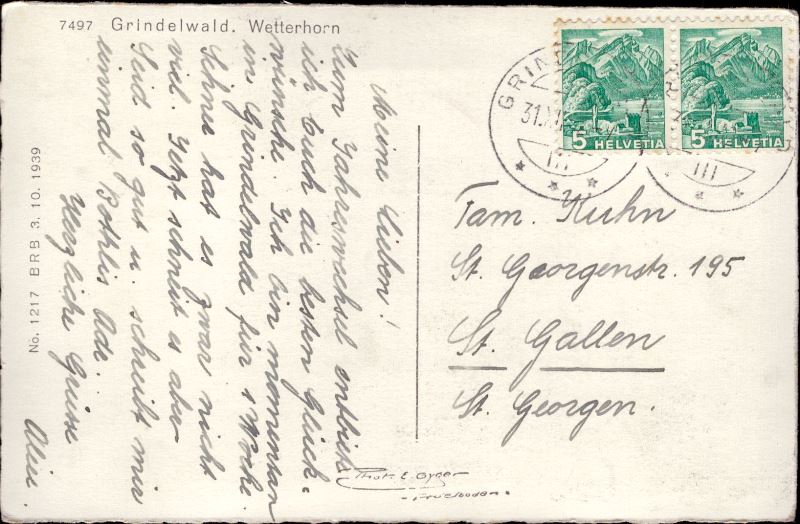 7497 Grindelwald. Wetterhorn
No. 1217 BRB 3. 10. 1939
Meine Lieben!
Zum Jahreswechsel entbiete
ich Euch die besten Glück-
wünsche. Ich bin momentan
im Grindelwald für 1 Woche.
Schnee hat es zwar nicht
viel. Jetzt schneit es aber
Seid so gut u. schreibt mir
einmal Adr.
Herzliche Grüsse
Phot. E. Gyger
Adelboden
GRIN
31.XII
5 HELVETIA
5 HELVETIA
Fam. Kuhn
St. Georgenstr. 195
St. Gallen
St. Georgen.